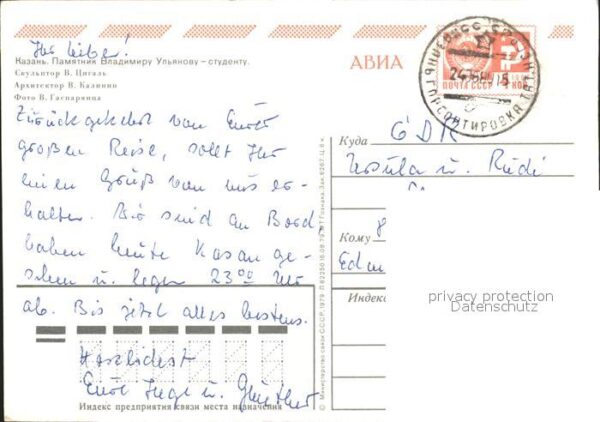 Ihr Lieben!
Казань. Памятник Владимиру Ульянову – студенту.
Скульптор В. Цигаль
Архитектор В. Калинин
Фото В. Гаспарянца
АВИА
ПОЧТА СССР
Zurückgekehrt von Eurer
großen Reise, sollt Ihr
einen Gruß von uns er-
halten. Wir sind an Bord
haben heute Kasan ge-
sehen u. legen 23⁰⁰ Uhr
ab. Bis jetzt alles bestens.
Herzlichst
Eure Inge u. Günther
Куда
GDR
Ursula u. Rudi
Кому
Индекс
privacy protection
Datenschutz
Министерство связи СССР, 1979
Индекс предприятия связи места назначения